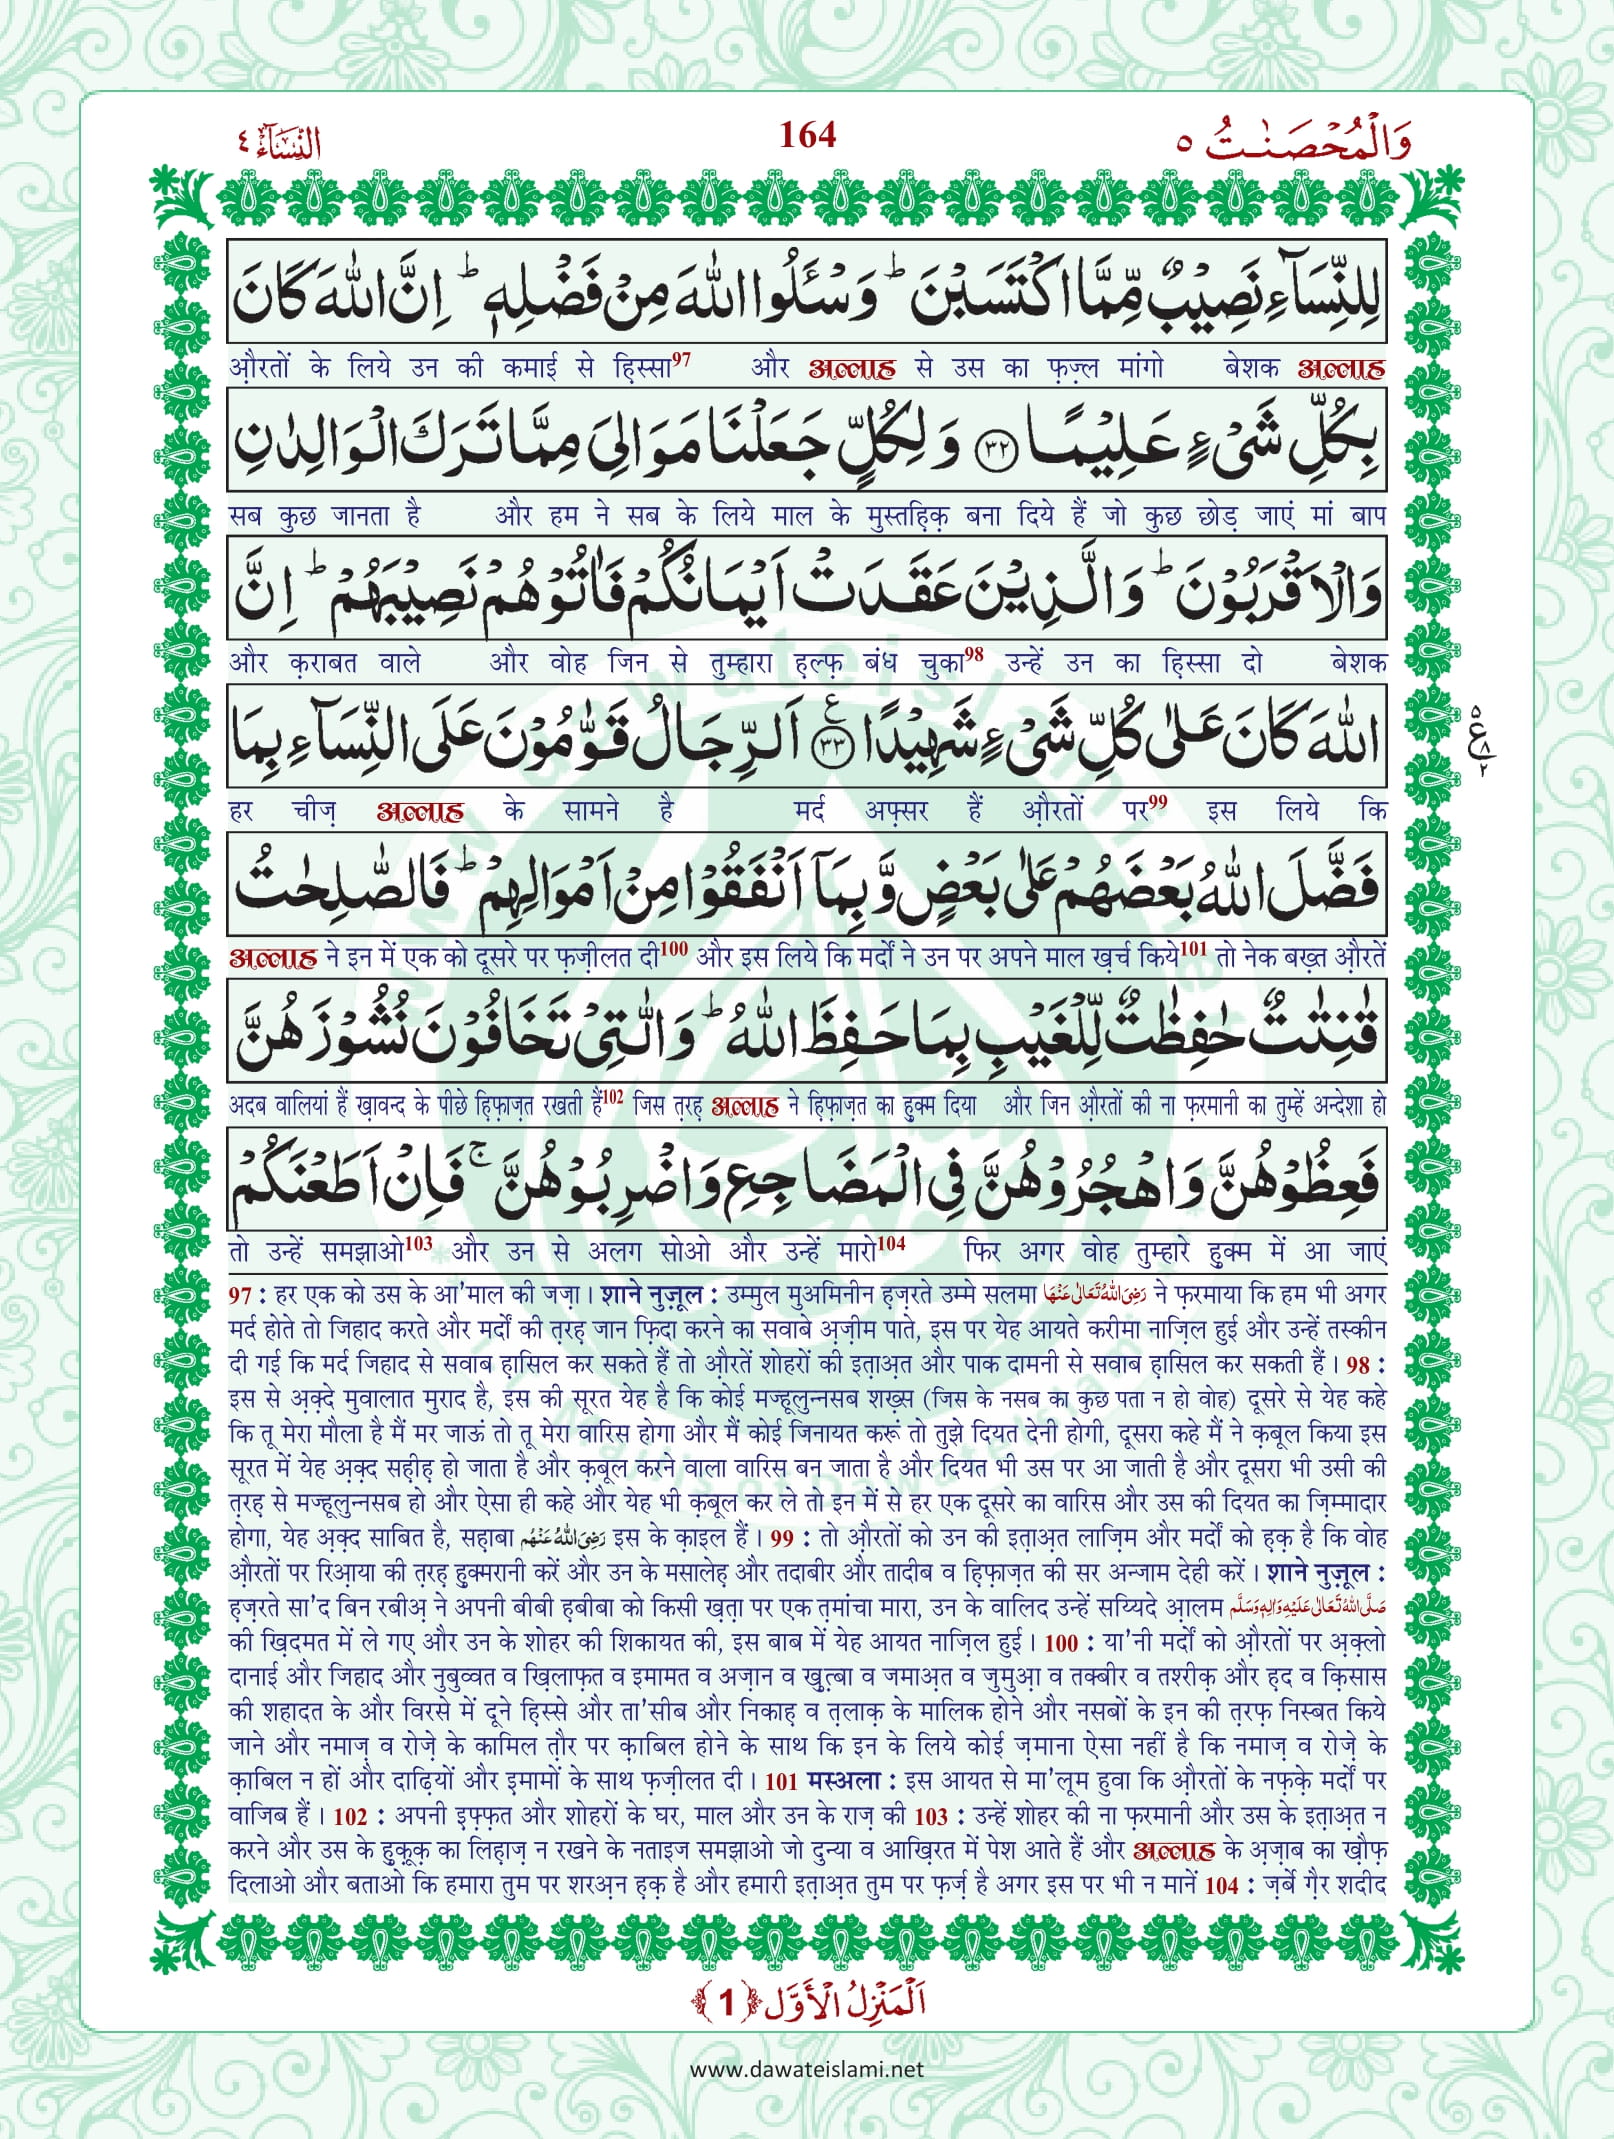 وَالْمُحْصَنٰتُ ٥
164
النِّسَآءُ ٤
لِلنِّسَآءِ نَصِيْبٌ مِّمَّا اكْتَسَبْنَ ؕ وَ سْـَٔلُوا اللّٰهَ مِنْ فَضْلِهٖ ؕ اِنَّ اللّٰهَ كَانَ
औ़रतों के लिये उन की कमाई से हिस्सा97 और अल्लाह से उस का फ़ज़्ल मांगो बेशक अल्लाह
بِكُلِّ شَیْءٍ عَلِیْمًا ﴿۳۲﴾ وَ لِكُلٍّ جَعَلْنَا مَوَالِیَ مِمَّا تَرَكَ الْوَالِدٰنِ
सब कुछ जानता है और हम ने सब के लिये माल के मुस्तह़िक़ बना दिये हैं जो कुछ छोड़ जाएं मां बाप
وَالْاَقْرَبُوْنَ ؕ وَ الَّذِیْنَ عَقَدَتْ اَیْمَانُكُمْ فَاٰتُوْهُمْ نَصِیْبَهُمْ ؕ اِنَّ
और क़राबत वाले और वोह जिन से तुम्हारा ह़ल्फ़ बंध चुका98 उन्हें उन का हिस्सा दो बेशक
اللّٰهَ كَانَ عَلٰى كُلِّ شَیْءٍ شَهِیْدًا ﴿۳۳﴾ ع اَلرِّجَالُ قَوّٰمُوْنَ عَلَى النِّسَآءِ بِمَا
ع ٥ ٨ ٢
हर चीज़ अल्लाह के सामने है मर्द अफ़्सर हैं औ़रतों पर99 इस लिये कि
فَضَّلَ اللّٰهُ بَعْضَهُمْ عَلٰى بَعْضٍ وَّ بِمَاۤ اَنْفَقُوْا مِنْ اَمْوَالِهِمْ ؕ فَالصّٰلِحٰتُ
अल्लाह ने इन में एक को दूसरे पर फ़ज़ीलत दी100 और इस लिये कि मर्दों ने उन पर अपने माल ख़र्च किये101 तो नेक बख़्त औ़रतें
قٰنِتٰتٌ حٰفِظٰتٌ لِّلْغَیْبِ بِمَا حَفِظَ اللّٰهُ ؕ وَ الّٰتِیْ تَخَافُوْنَ نُشُوْزَهُنَّ
अदब वालियां हैं ख़ावन्द के पीछे हि़फ़ाज़त रखती हैं102 जिस त़रह़ अल्लाह ने हि़फ़ाज़त का हु़क्म दिया और जिन औ़रतों की ना फ़रमानी का तुम्हें अन्देशा हो
فَعِظُوْهُنَّ وَ اهْجُرُوْهُنَّ فِی الْمَضَاجِعِ وَ اضْرِبُوْهُنَّ ۚ فَاِنْ اَطَعْنَكُمْ
तो उन्हें समझाओ103 और उन से अलग सोओ और उन्हें मारो104 फिर अगर वोह तुम्हारे हु़क्म में आ जाएं
97 : हर एक को उस के आ'माल की जज़ा। शाने नुज़ूल : उम्मुल मुअमिनीन ह़ज़रते उम्मे सलमा رَضِیَ اللّٰهُ تَعَالٰی عَنْهَا ने फ़रमाया कि हम भी अगर
मर्द होते तो जिहाद करते और मर्दों की त़रह़ जान फ़िदा करने का सवाबे अ़ज़ीम पाते, इस पर येह आयते करीमा नाज़िल हुई और उन्हें तस्कीन
दी गई कि मर्द जिहाद से सवाब ह़ासिल कर सकते हैं तो औ़रतें शोहरों की इत़ाअ़त और पाक दामनी से सवाब ह़ासिल कर सकती हैं। 98 :
इस से अ़क़्दे मुवालात मुराद है, इस की सूरत येह है कि कोई मज्हूलुन्नसब शख़्स (जिस के नसब का कुछ पता न हो वोह) दूसरे से येह कहे
कि तू मेरा मौला है मैं मर जाऊं तो तू मेरा वारिस होगा और मैं कोई जिनायत करूं तो तुझे दियत देनी होगी, दूसरा कहे मैं ने क़बूल किया इस
सूरत में येह अ़क़्द सह़ीह़ हो जाता है और क़बूल करने वाला वारिस बन जाता है और दियत भी उस पर आ जाती है और दूसरा भी उसी की
त़रह़ से मज्हूलुन्नसब हो और ऐसा ही कहे और येह भी क़बूल कर ले तो इन में से हर एक दूसरे का वारिस और उस की दियत का ज़िम्मादार
होगा, येह अ़क़्द साबित है, सह़ाबा رَضِیَ اللّٰهُ عَنْهُم इस के क़ाइल हैं। 99 : तो औ़रतों को उन की इत़ाअ़त लाज़िम और मर्दों को ह़क़ है कि वोह
औ़रतों पर रिआ़या की त़रह़ हु़क्मरानी करें और उन के मसालेह़ और तदाबीर और तादीब व हि़फ़ाज़त की सर अन्जाम देही करें। शाने नुज़ूल :
ह़ज़रते सा'द बिन रबीअ़ ने अपनी बीबी ह़बीबा को किसी ख़त़ा पर एक त़मांचा मारा, उन के वालिद उन्हें सय्यिदे आ़लम صَلَّی اللّٰهُ تَعَالٰی عَلَیْهِ وَاٰلِهٖ وَسَلَّم
की ख़िदमत में ले गए और उन के शोहर की शिकायत की, इस बाब में येह आयत नाज़िल हुई। 100 : या'नी मर्दों को औ़रतों पर अ़क़्लो
दानाई और जिहाद और नुबुव्वत व ख़िलाफ़त व इमामत व अज़ान व ख़ुत़्बा व जमाअ़त व जुमुआ़ व तक्बीर व तश्रीक़ और ह़द व क़िसास
की शहादत के और विरसे में दूने हिस्से और ता'सीब और निकाह़ व त़लाक़ के मालिक होने और नसबों के इन की त़रफ़ निस्बत किये
जाने और नमाज़ व रोज़े के कामिल त़ौर पर क़ाबिल होने के साथ कि इन के लिये कोई ज़माना ऐसा नहीं है कि नमाज़ व रोज़े के
क़ाबिल न हों और दाढ़ियों और इ़मामों के साथ फ़ज़ीलत दी। 101 मस्अला : इस आयत से मा'लूम हुवा कि औ़रतों के नफ़क़े मर्दों पर
वाजिब हैं। 102 : अपनी इ़फ़्फ़त और शोहरों के घर, माल और उन के राज़ की 103 : उन्हें शोहर की ना फ़रमानी और उस के इत़ाअ़त न
करने और उस के हु़क़ूक़ का लिह़ाज़ न रखने के नताइज समझाओ जो दुन्या व आख़िरत में पेश आते हैं और अल्लाह के अ़ज़ाब का ख़ौफ़
दिलाओ और बताओ कि हमारा तुम पर शरअ़न ह़क़ है और हमारी इत़ाअ़त तुम पर फ़र्ज़ है अगर इस पर भी न मानें 104 : ज़र्बे ग़ैर शदीद
اَلْمَنْزِلُ الْاَوَّل ﴿1﴾
www.dawateislami.net